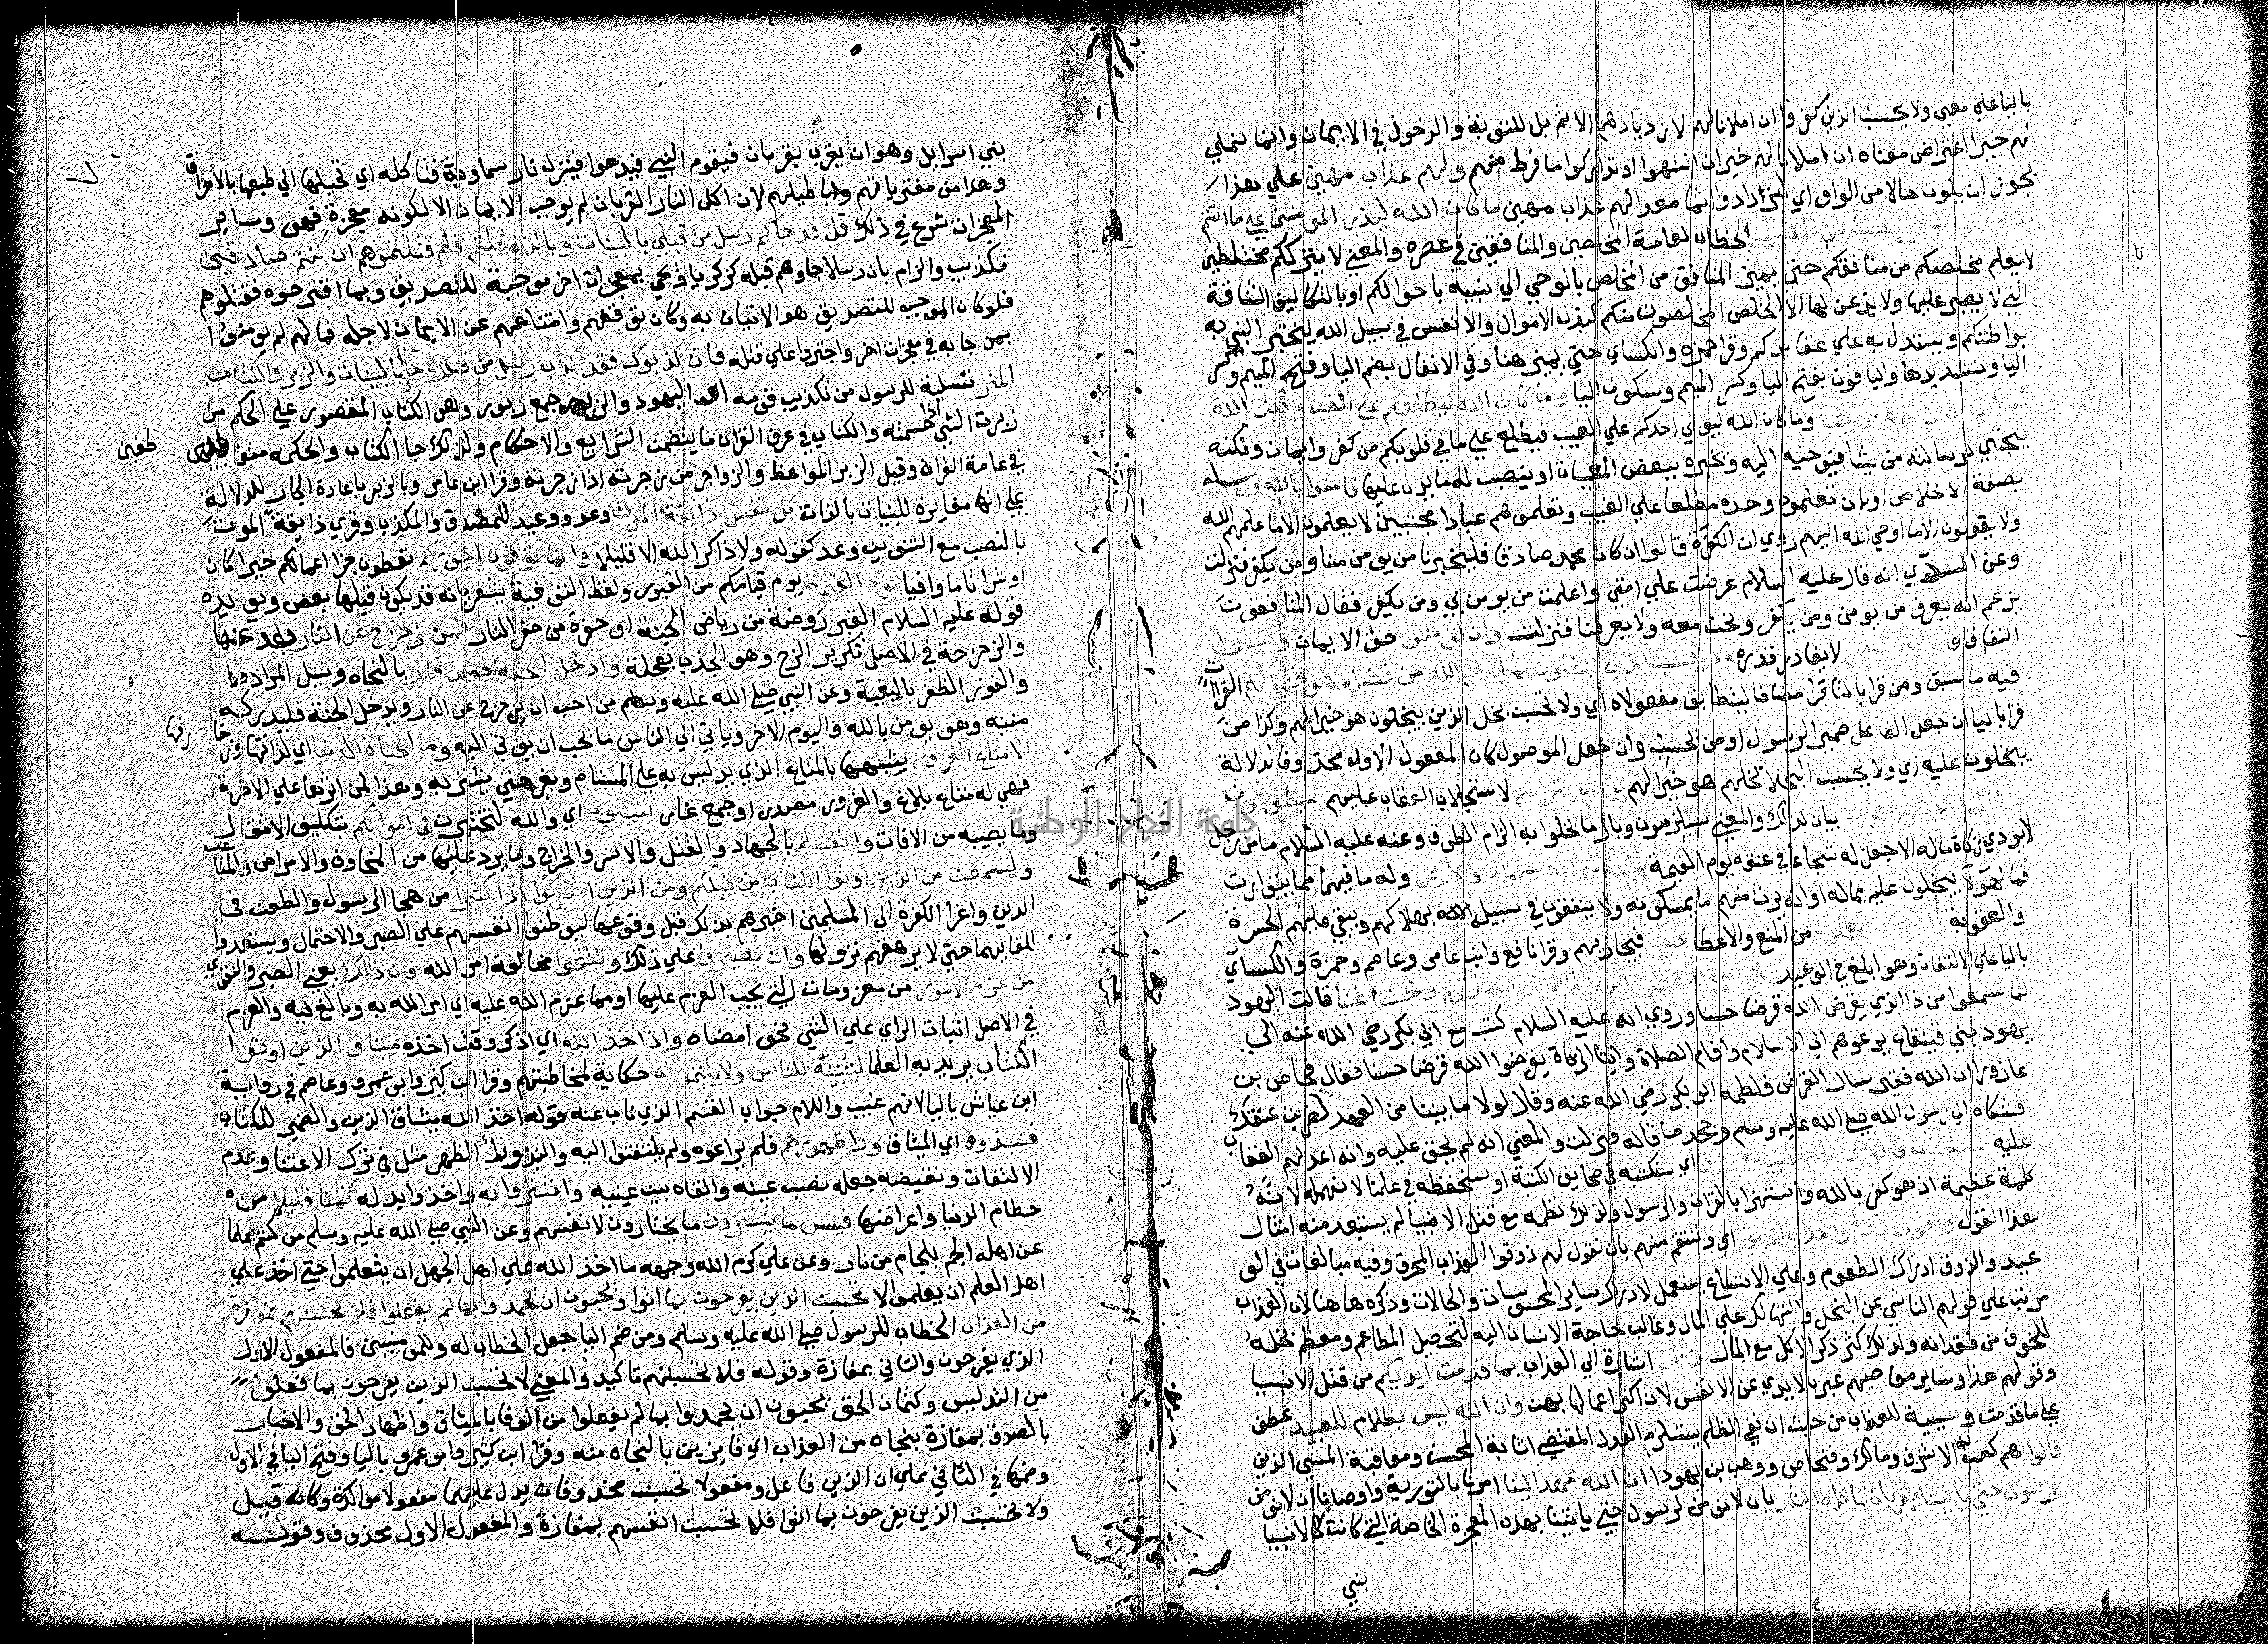 بالياعلي معني ولا يحسبن الذين كفروا ان املانا لهم لازديادهم الاثم بل للتوبة والدخول في الايمان وانما نملي
لهم خيرا اعتراض معناه ان املانا لهم خير ان انتهوا وتداركوا ما فرط منهم ولهم عذاب مهين علي هذا
يجوز ان يكون حالا من الواو اي ليزدادوا اثما معدا لهم عذاب مهين ما كان الله ليذر المومنين علي ما انتم
عليه حتي يميز الخبيث من الطيب الخطاب لعامة المخلصين والمنافقين في عصره والمعني لا يترككم مختلطين
لا يعلم مخلصكم من منافقكم حتي يميز المنافق من المخلص بالوحي الي نبيه باحوالكم او بالتكاليف الشاقة
التي لا يصبر عليها ولا يذعن لها الا الخلص المخلصون منكم كبذل الاموال والانفس في سبيل الله ليختبر النبي به
بواطنكم ويستدل به علي عقايدكم وقرا حمزه والكساي حتي يميز هنا وفي الانفال بضم اليا وفتح الميم وكسر
اليا وتشديدها والباقون بفتح اليا وكسر الميم وسكون اليا وما كان الله ليطلعكم علي الغيب ولكن الله
يجتبي من رسله من يشا وما كان الله ليوتي احدكم علي الغيب فيطلع علي ما في قلوبكم من كفر وايمان ولكنه
يجتبي لرسالته من يشا فيوحي اليه ويخبره ببعض المغيبات او ينصب له ما يدل عليها فامنوا بالله ورسله
بصفة الاخلاص او بان تعلموه وحده مطلعا علي الغيب وتعلموهم عبادا مجتبين لا يعلمون الا ما علمهم الله
ولا يقولون الا ما اوحي الله اليهم روي ان الكفرة قالوا ان كان محمد صادقا فليخبرنا من يومن منا ومن يكفر فنزلت
وعن السدي انه قال عليه السلام عرضت علي امتي واعلمت من يومن بي ومن يكفر فقال المنافقون
يزعم انه يعرف من يومن ومن يكفر ونحن معه ولا يعرفنا فنزلت وان تومنوا حق الايمان وتتقوا
النفاق فلكم اجر عظيم لا يقادر قدره ولا يحسبن الذين يبخلون بما اتاهم الله من فضله هو خيرا لهم القراات
فيه ما سبق ومن قرا بالتا قدر مضافا ليتطابق مفعولاه اي ولا تحسبن بخل الذين يبخلون هو خيرا لهم وكذا من
قرا باليا ان جعل الفاعل ضمير الرسول او من يحسب وان جعل الموصول كان المفعول الاول محذوفا لدلالة
يبخلون عليه اي ولا يحسبن البخلا بخلهم هو خيرا لهم بل هو شر لهم لاستجلاب العقاب عليهم سيطوقون
ما بخلوا به يوم القيمة بيان لذلك والمعني سيلزمون وبال ما بخلوا به الزام الطوق وعنه عليه السلام ما من رجل
لا يودي زكاة ماله الا جعل له شجاعا في عنقه يوم القيمة ولله ميراث السموات والارض وله ما فيهما مما يتوارث
فما لهولا يبخلون عليه بماله او انه يرث منهم ما يمسكونه ولا ينفقون في سبيل الله بهلاكهم ويبقي عليهم الحسرة
والعقوبة والله بما تعملون من المنع والاعطا خبير فيجازيهم وقرا نافع وابن عامر وعاصم وحمزة والكساي
بالتا علي الالتفات وهو ابلغ في الوعيد لقد سمع الله قول الذين قالوا ان الله فقير ونحن اغنيا قالت اليهود
لما سمعوا من ذا الذي يقرض الله قرضا حسنا وروي انه عليه السلام كتب مع ابي بكر رضي الله عنه الي
يهود بني قينقاع يدعوهم الي الاسلام واقام الصلاة وايتا الزكاة وان يقرضوا الله قرضا حسنا فقال فنحاص بن
عازورا ان الله فقير سال القرض فلطمه ابو بكر رضي الله عنه وقال لولا ما بيننا من العهد لضربت عنقك
فشكاه الي رسول الله صلي الله عليه وسلم وجحد ما قاله فنزلت والمعني انه لم يخف عليه وانه اعد لهم العقاب
عليه سنكتب ما قالوا وقتلهم الانبيا بغير حق اي سنكتبه في صحايف الكتبة او سنحفظه في علمنا لا نهمله لانه
كلمة عظيمة اذ هو كفر بالله واستهزا بالقران والرسول ولذلك نظمه مع قتل الانبيا لم يستبعد منه امثال
هذا القول ونقول ذوقوا عذاب الحريق اي وننتقم منهم بان نقول لهم ذوقوا العذاب المحرق وفيه مبالغات في الو
عيد والذوق ادراك الطعوم وعلي الاتساع يستعمل لادراك ساير المحسوسات والحالات وذكره هاهنا لان العذاب
مرتب علي قولهم الناشي عن البخل والتهالك علي المال وغالب حاجة الانسان اليه لتحصيل المطاعم ومعظم بخله
للخوف من فقدانه ولذلك كثر ذكر الاكل مع المال ذلك اشارة الي العذاب بما قدمت ايديكم من قتل الانبيا
وقولهم هذا وساير معاصيهم عبر بالايدي عن الانفس لان اكثر اعمالها بهن وان الله ليس بظلام للعبيد عطف
علي ما قدمت وسببية للعذاب من حيث ان نفي الظلم يستلزم العدل المقتضي اثابة المحسن ومعاقبة المسي الذين
قالوا هم كعب بن الاشرف ومالك وفنحاص ووهب بن يهودا ان الله عهد الينا امرنا بالتورية واوصانا ان لا نومن
لرسول حتي ياتينا بقربان تاكله النار بان لا نومن لرسول حتي ياتينا بهذه المعجزة الخاصة التي كانت لانبيا
بني
بني اسرايل وهو ان يقرب بقربان فيقوم النبي فيدعوا فينزل نار سماوية فتاكله اي تحيلها الي طبعها بالاحراق
وهذا من مفترياتهم واباطيلهم لان اكل النار القربان لم يوجب الايمان الا لكونه معجزة فهو وساير
المعجزات شرع في ذلك قل قد جاكم رسل من قبلي بالبينات وبالذي قلتم فلم قتلتموهم ان كنتم صادقين
تكذيب والزام بان رسلا جاوهم قبله كزكريا ويحي بمعجزات اخر موجبة للتصديق وبما اقترحوه فقتلوهم
فلو كان الموجب للتصديق هو الاتيان به وكان توقفهم وامتناعهم عن الايمان لاجله فما لهم لم يومنوا
بمن جا به في معجزات اخر واجتروا علي قتله فان كذبوك فقد كذب رسل من قبلك جاوا بالبينات والزبر والكتاب
المنير تسلية للرسول من تكذيب قومه اليهود والزبر جمع زبور وهو الكتاب المقصور علي الحكم من
زبرت الشي اذا حسنته والكتاب في عرف القران ما يتضمن الشرايع والاحكام ولذلك جا الكتاب والحكمه متعاطفين
طفين
في عامة القران وقيل الزبر المواعظ والزواجر من زجرته اذا زجرته وقرا ابن عامر وبالزبر باعادة الجار للدلالة
علي انها مغايرة للبينات بالذات كل نفس ذايقة الموت وعد ووعيد للمصدق والمكذب وقري ذايقة الموت
بالنصب مع التنوين وعدمه كقوله ولا ذاكر الله الا قليلا وانما توفون اجوركم تعطون جزا اعمالكم خيرا كان
او شرا تاما وافيا يوم القيمة يوم قيامكم من القبور ولفظ التوفية يشعر بانه قد يكون قبلها بعض ويويده
قوله عليه السلام القبر روضة من رياض الجنة او حفرة من حفر النار فمن زحزح عن النار بعد عنها
والزحزحة في الاصل تكرير الزح وهو الجذب بعجلة وادخل الجنة فقد فاز بالنجاه ونيل المراد
والفوز الظفر بالبغية وعن النبي صلي الله عليه وسلم من احب ان يزحزح عن النار ويدخل الجنة فليدركه
منيته وهو يومن بالله واليوم الاخر وياتي الي الناس ما يحب ان يوتي اليه وما الحياة الدنيا اي لذاتها وزخا
رفها
الا متاع الغرور يشبهها بالمتاع الذي يدلس به علي المستام ويغر حتي يشتريه وهذا لمن اثرها علي الاخرة
فهي له متاع بلاغ والغرور مصدر او جمع غار لتبلون اي والله لتختبرن في اموالكم بتكليف الانفاق
وما يصيبه من الافات وانفسكم بالجهاد والقتل والاسر والجراح وما يرد عليها من المخاوف والامراض والمتاعب
ولتسمعن من الذين اوتوا الكتاب من قبلكم ومن الذين اشركوا اذا كثيرا من هجا الرسول والطعن في
الدين واغرا الكفرة الي المسلمين اخبرهم بذلك قبل وقوعها ليوطنوا انفسهم علي الصبر والاحتمال ويستعدوا
للقايها حتي لا يرهقهم نزولها وان تصبروا علي ذلك وتتقوا مخالفة امر الله فان ذلك يعني الصبر والتقوي
من عزم الامور من معزومات التي يجب العزم عليها او مما عزم الله عليه اي امر الله به وبالغ فيه والعزم
في الاصل اثبات الراي علي الشي نحو امضاه واذ اخذ الله اي اذكر وقت اخذه ميثاق الذين اوتوا
الكتاب يريد به العلما لتبيننه للناس ولا تكتمونه حكاية لمخاطبتهم وقرا ابن كثير وابو عمرو وعاصم في رواية
ابن عياش باليا لانهم غيب واللام جواب القسم الذي ناب عنه قوله اخذ الله ميثاق الذين والضمير للكتاب
فنبذوه اي الميثاق ورا ظهورهم فلم يراعوه ولم يلتفتوا اليه والنبذ ورا الظهر مثل في ترك الاعتنا وعدم
الالتفات ونقيضه جعله نصب عينه والقاه بين عينيه واشتروا به واخذوا بدله ثمنا قليلا من
حطام الدنيا واعراضها فبيس ما يشترون ما يختارون لانفسهم وعن النبي صلي الله عليه وسلم من كتم علما
عن اهله الجم بلجام من نار وعن علي كرم الله وجهه ما اخذ الله علي اهل الجهل ان يتعلموا حتي اخذ علي
اهل العلم ان يعلموا لا تحسبن الذين يفرحون بما اتوا ويحبون ان يحمدوا بما لم يفعلوا فلا تحسبنهم بمفازة
من العذاب الخطاب للرسول صلي الله عليه وسلم ومن ضم البا جعل الخطاب له وللمومنين فالمفعول الاول
الذي يفرحون والثاني بمفازة وقوله فلا تحسبنهم تاكيد والمعني لا تحسبن الذين يفرحون بما فعلوا
من التدليس وكتمان الحق يحبون ان يحمدوا بما لم يفعلوا من الوفا بالميثاق واظهار الحق والاخبار
بالصدق بمفازة بنجاه من العذاب اي فايزين بالنجاه منه وقرا ابن كثير وابو عمرو باليا وفتح البا في الاول
وضمها في الثاني علي ان الذين فاعل ومفعولا تحسبن محذوفان يدل عليهما مفعولا موكده وكانه قيل
ولا تحسبن الذين يفرحون بما اتوا فلا تحسبن انفسهم بمفازة والمفعول الاول محذوف وقوله
جامعة النجاح الوطنية